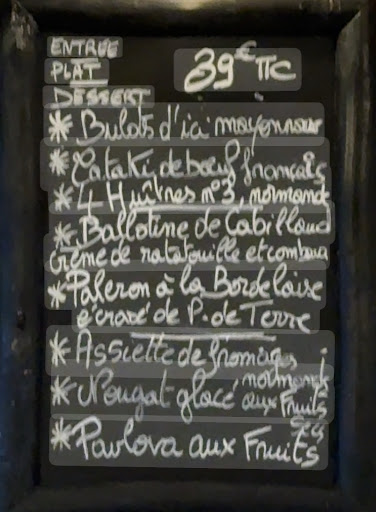 ENTRÉE
PLAT
DESSERT
39€ TTC
* Bulots d'ici mayonnaise
* Tataki de bœuf français
* 4 Huîtres n°3, normand
* Ballotine de Cabillaud
crème de ratatouille et combawa
* Paleron à la Bordelaise
écrasé de P. de Terre
* Assiette de fromages
normands
* Nougat glacé aux Fruits
Secs
* Pavlova aux Fruits